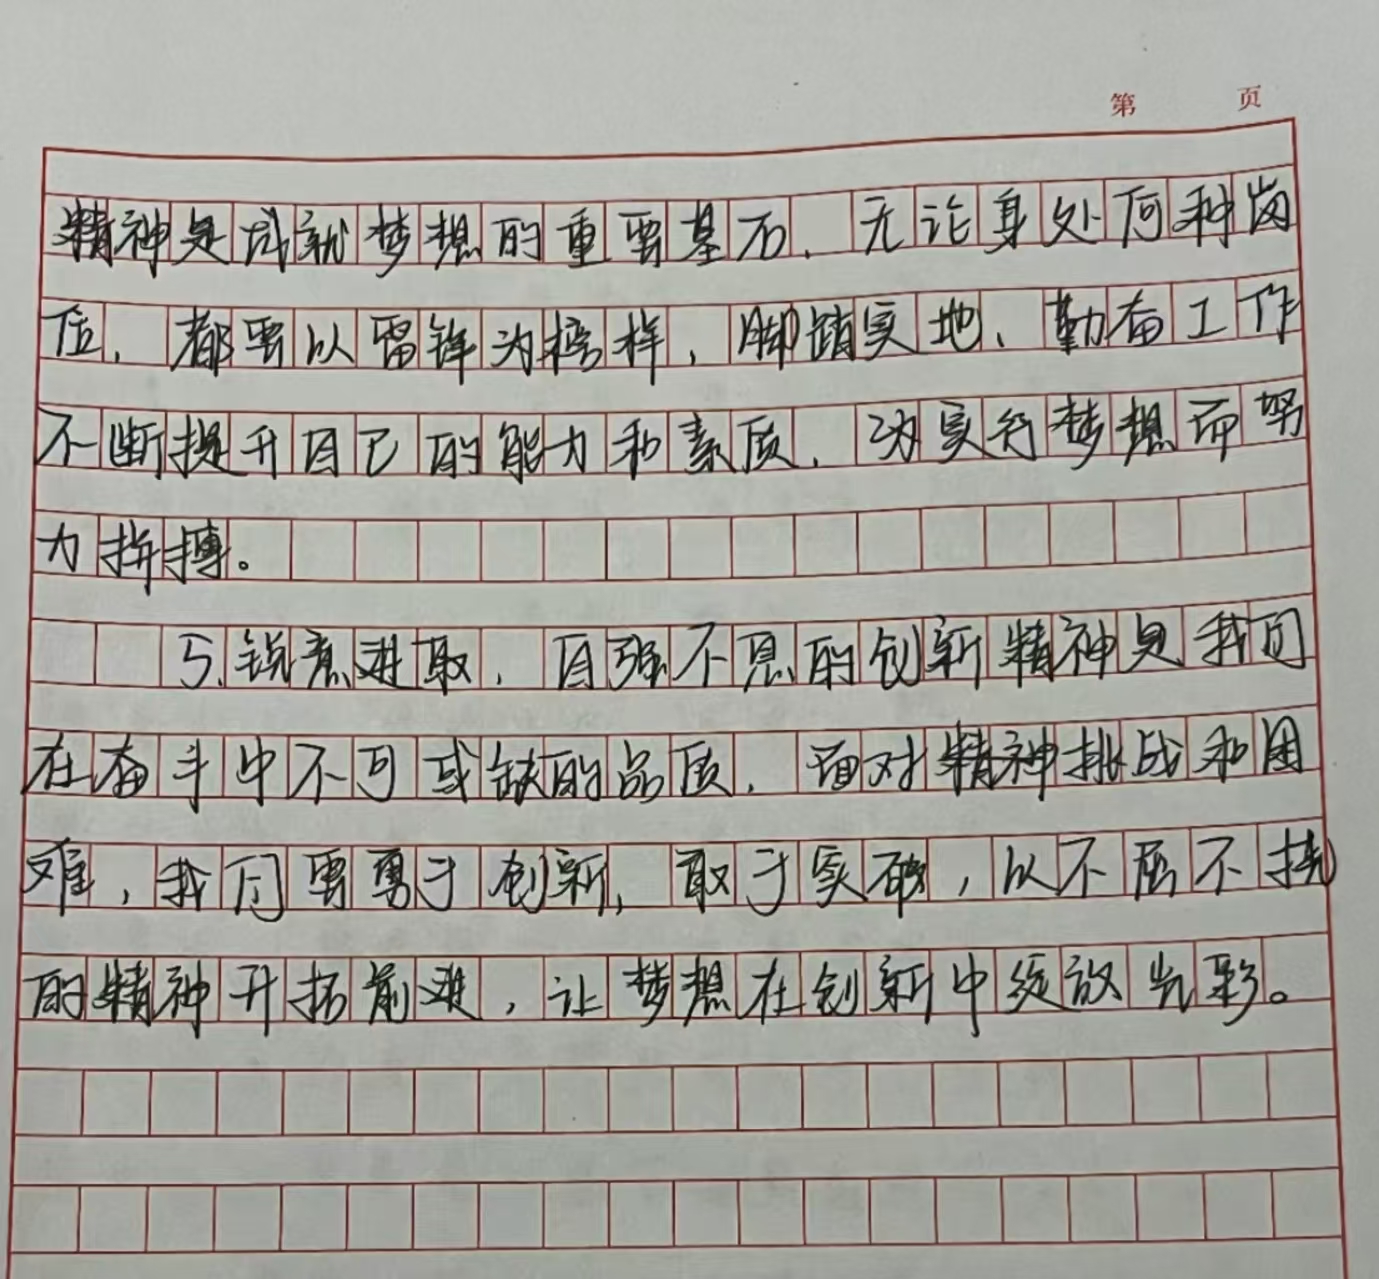 第 页
精神是成就梦想的重要基石、无论身处何种岗
位、都要以雷锋为榜样，脚踏实地、勤奋工作
不断提升自己的能力和素质、为实行梦想而努
力拚搏。
5、锐意进取、自强不息的创新精神是我们
在奋斗中不可或缺的品质、面对精神挑战和困
难，我们要勇于创新，取于突破，以不屈不挠
的精神开拓前进，让梦想在创新中绽放光彩。